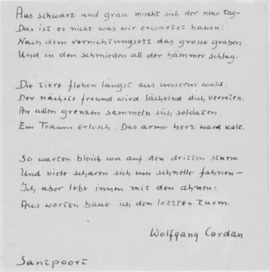 Aus schwarz und grau mischt sich der neue tag–
Das ist es nicht was wir erwartet haben:
Nach dem vernichtungssatz das grosse graben
Und in den schmieden all der hämmer schlag.
Die tiere flohen längst aus unserm wald.
Der nächste freund wird lächelnd dich verraten.
An allen grenzen sammeln sich soldaten.
Ein Traum erlosch. Das arme herz ward kalt.
So warten bleich wir auf den dritten sturm
Und viele scharen sich um schnelle fahnen–
Ich aber lebe innen mit den ahnen:
Aus worten baue ich den letzten turm.
Wolfgang Cordan
Santpoort